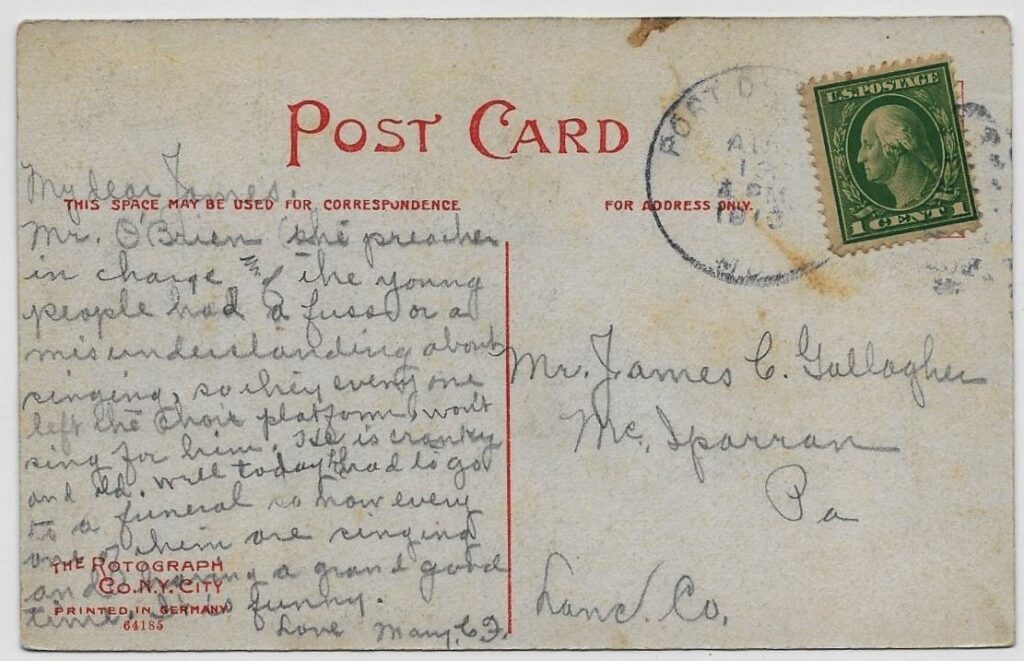 POST CARD
My dear James.
THIS SPACE MAY BE USED FOR CORRESPONDENCE
Mr. O'Brien the preacher
in charge of the young
people had a fuss or a
misunderstanding about
singing, so they every one
left the Choir platform, won't
sing for him. He is cranky
and old. Well today he had to go
to a funeral so now every
one of them are singing
and having a grand good
time. It is funny.
Love Mary. C. F.
THE ROTOGRAPH
CO. N.Y. CITY
PRINTED IN GERMANY
64185
FOR ADDRESS ONLY.
PORT D
AUG
12
4 PM
M
U.S. POSTAGE
1 CENT 1
Mr. James C. Gallagher
Mc. Sparran
Pa
Lanc. Co.